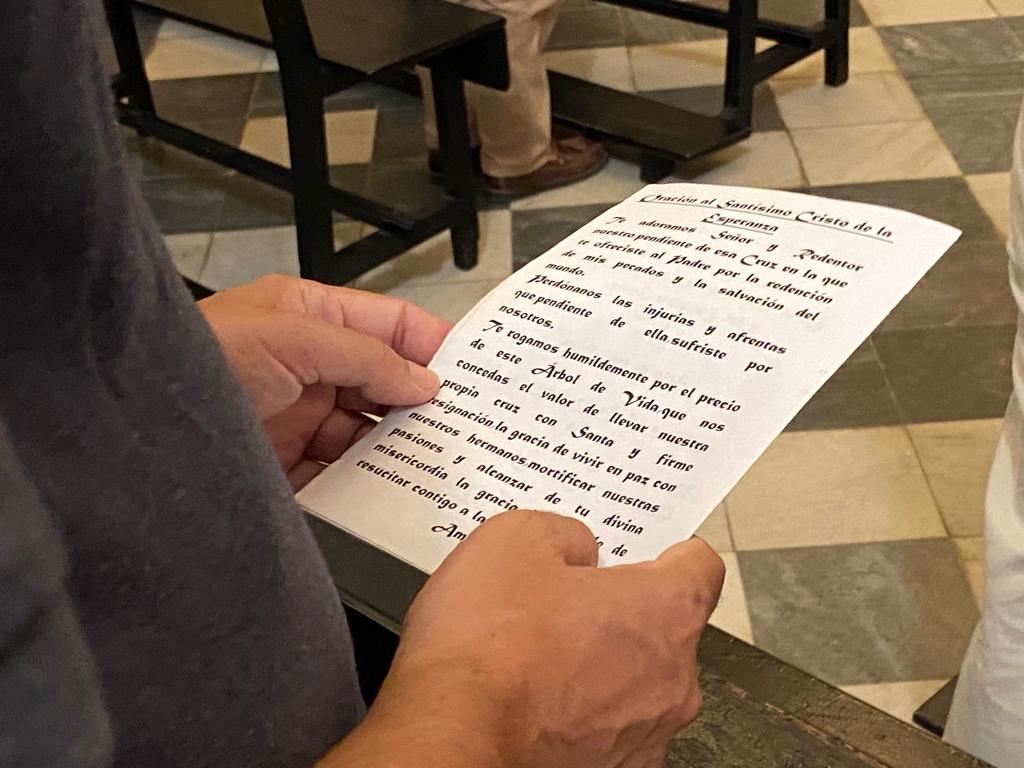 Oración al Santísimo Cristo de la
Esperanza
Te adoramos Señor y Redentor
nuestro,pendiente de esa Cruz en la que
te ofreciste al Padre por la redención
de mis pecados y la salvación del
mundo.
Perdónanos las injurias y afrentas
que,pendiente de ella,sufriste por
nosotros.
Te rogamos humildemente por el precio
de este Árbol de Vida,que nos
concedas el valor de llevar nuestra
propia cruz con Santa y firme
esignación,la gracia de vivir en paz con
nuestros hermanos,mortificar nuestras
pasiones y alcanzar de tu divina
misericordia la gracia de
resucitar contigo a la
Am